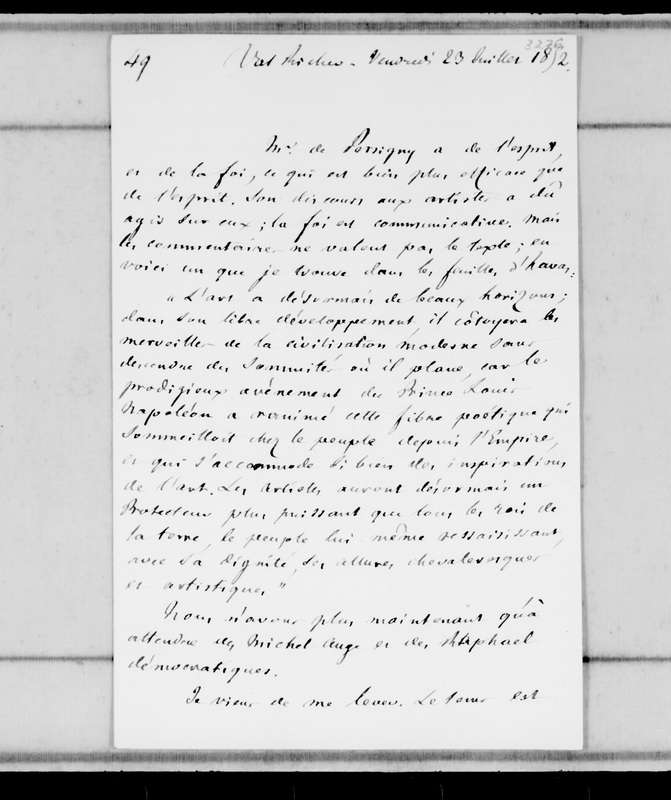 3236
49 Val Richer - Vendredi 23 Juillet 1852.
Mr. de Persigny a de l'esprit,
et de la foi, ce qui est bien plus efficace que
de l'esprit. Son discours aux artistes a dû
agir sur eux ; la foi est communicative. Mais
les commentaires ne valent pas le texte ; en
voici un que je trouve dans les feuilles d'havas :
" L'art a désormais de beaux horizons ;
dans son libre développement, il côtoyera les
merveilles de la civilisation moderne sans
descendre des sommités où il plane, car le
prodigieux avènement du Prince Louis
Napoléon a ranimé cette fibre poétique qui
sommeilloit chez le peuple depuis l'Empire,
et qui s'accommode si bien des inspirations
de l'art. Les artistes auront désormais un
Protecteur plus puissant que tous les rois de
la terre, le peuple lui même ressaisissant,
avec sa dignité, ses allures chevaleresques
et artistiques "
Nous n'avons plus maintenant qu'à
attendre des Michel Ange et des Raphael
démocratiques.
Je viens de me lever. Le tems est